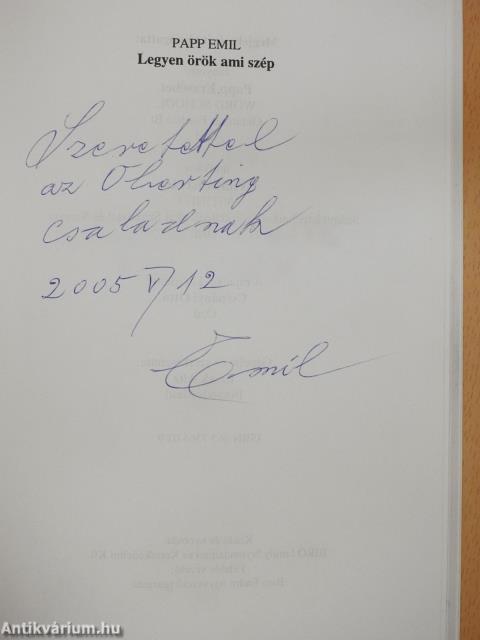 PAPP EMIL
Legyen örök ami szép
Szeretettel
az Oherting
családnak
2005 V/12
Emil
Antikvárium.hu